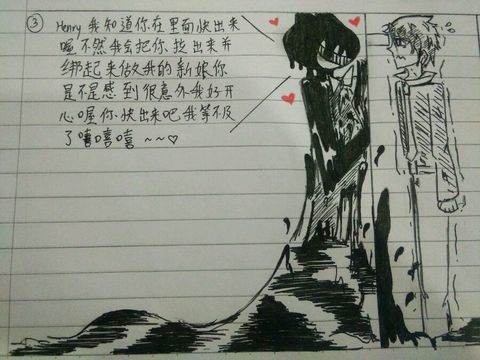 ③ Henry 我知道你在里面快出来
喔不然我会把你拉出来并
绑起来做我的新娘你
是不是感到很意外我好开
心喔你快出来吧我等不及
了嘻嘻嘻~~♡